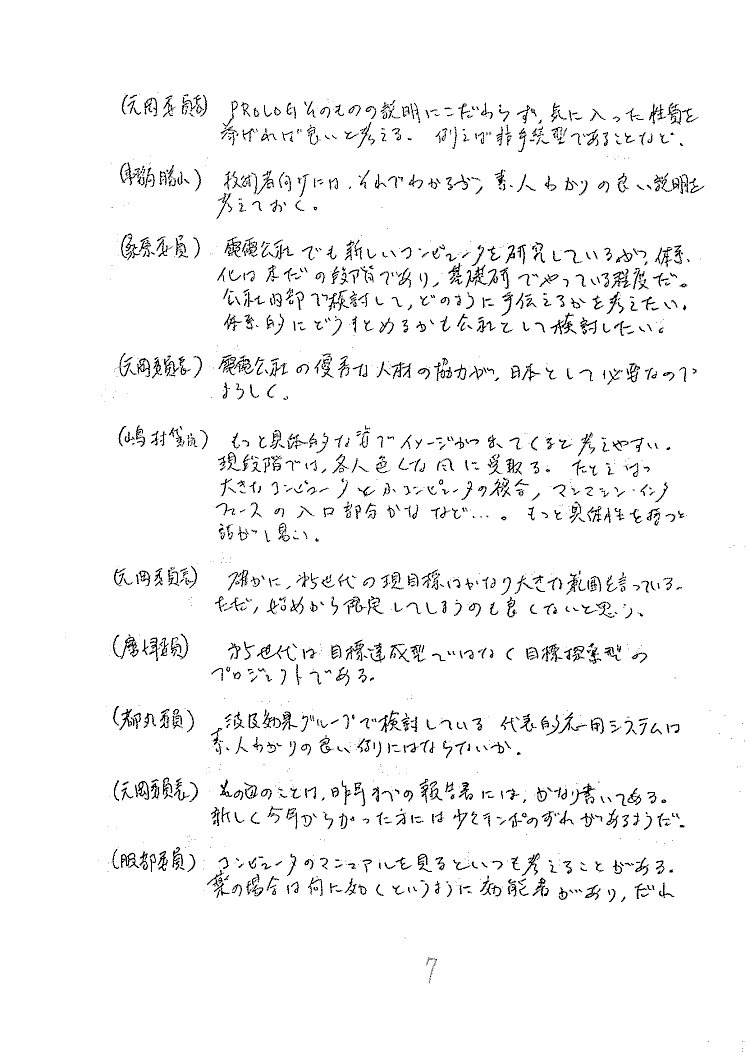 (元岡委員長) PROLOGそのものの説明にこだわらず, 気に入った性質を
挙げれば良いと考える。 例えば非手続型であることなど.
技術者向けには, それでわかるが, 素人わかりの良い説明を
考えておく。
(桑原委員) 電電公社でも新しいコンピュータを研究しているが, 体系
化は未だの段階であり, 基礎研でやっている程度だ。
公社内部で検討して, どのように手伝えるかを考えたい.
体系的にどうまとめるかも公社として検討したい。
(元岡委員長) 電電公社の優秀な人材の協力が, 日本として必要なので
よろしく。
(嶋村 もっと具体的な姿でイメージが出てくると考えやすい.
現段階では, 各人色々な風に受取る。 たとえば
大きなコンピュータと小コンピュータの複合, マンマシン・インタ
フェースの入口部分かななど…。 もっと具体性を持つと
話がし易い.
(元岡委員長) 確かに, 第5世代の現目標はかなり大きな範囲を言っている.
ただ, 始めから限定してしまうのも良くないと思う.
(唐津委員) 第5世代は目標達成型ではなく目標探索型の
プロジェクトである.
(都丸委員) 波及効果グループで検討している 代表的応用システムは
素人わかりの良い例にはならないか.
(元岡委員長) その辺のことは, 昨年までの報告書には, かなり書いてある.
新しく今年からかかった方には少々テンポのずれがあるようだ.
(服部委員) コンピュータのマニュアルを見るといつも考えることがある.
薬の場合は何に効くというように効能書があり, だれ
7